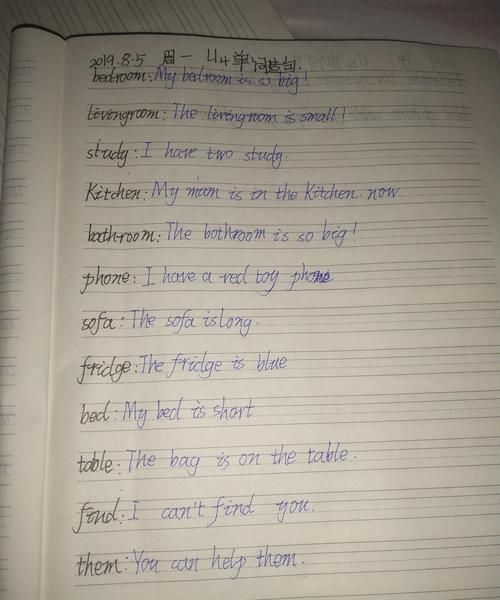 2019.8.5 周一 U4单词造句.
bedroom: My bedroom is so big!
livingroom: The livingroom is small!
study: I have two study.
Kitchen: My mum is in the Kitchen now.
bathroom: The bathroom is so big!
phone: I have a red toy phone
sofa: The sofa is long.
fridge: The fridge is blue
bed: My bed is short
table: The bag is on the table.
find: I can't find you.
them: You can help them.